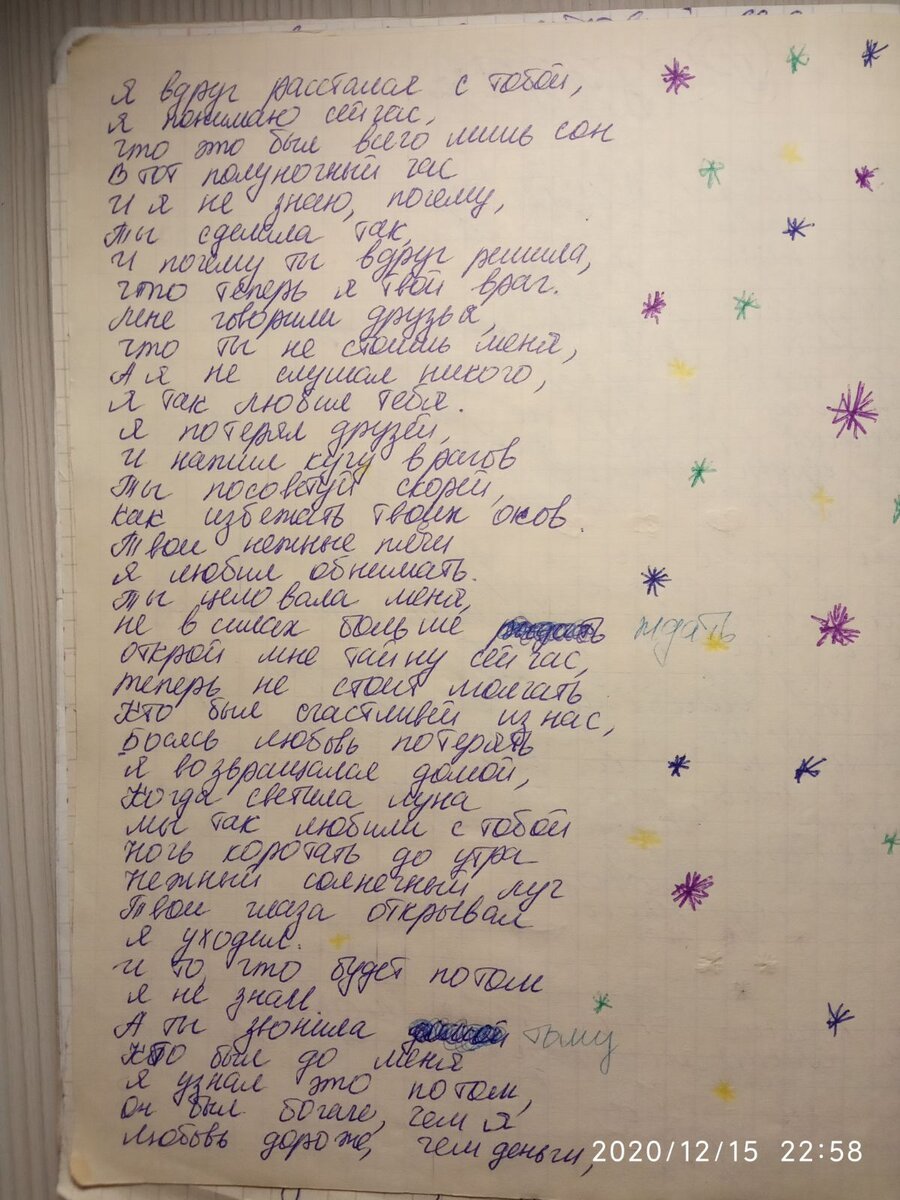 Я вдруг расстался с тобой,
я понимаю сейчас,
что это был всего лишь сон
В тот полуночный час
И я не знаю, почему,
Ты сделала так,
И почему ты вдруг решила,
что теперь я твой враг.
Мне говорили друзья,
что ты не стоишь меня,
А я не слушал никого,
Я так любил тебя.
Я потерял друзей,
И нажил кучу врагов
Ты посоветуй скорей,
как избежать твоих оков.
Твои нежные плечи
Я любил обнимать.
Ты целовала меня,
не в силах больше ждать
открой мне тайну сейчас,
теперь не стоит молчать
Кто был счастливей из нас,
Боясь любовь потерять
Я возвращался домой,
Когда светила луна
мы так любили с тобой
Ночь коротать до утра
Нежный солнечный луч
Твои глаза открывал
Я уходил.
И то, что будет потом
Я не знал
А ты звонила тому
Кто был до меня
Я узнал это потом,
он был богаче, чем я,
любовь дороже, чем деньги,
2020/12/15 22:58